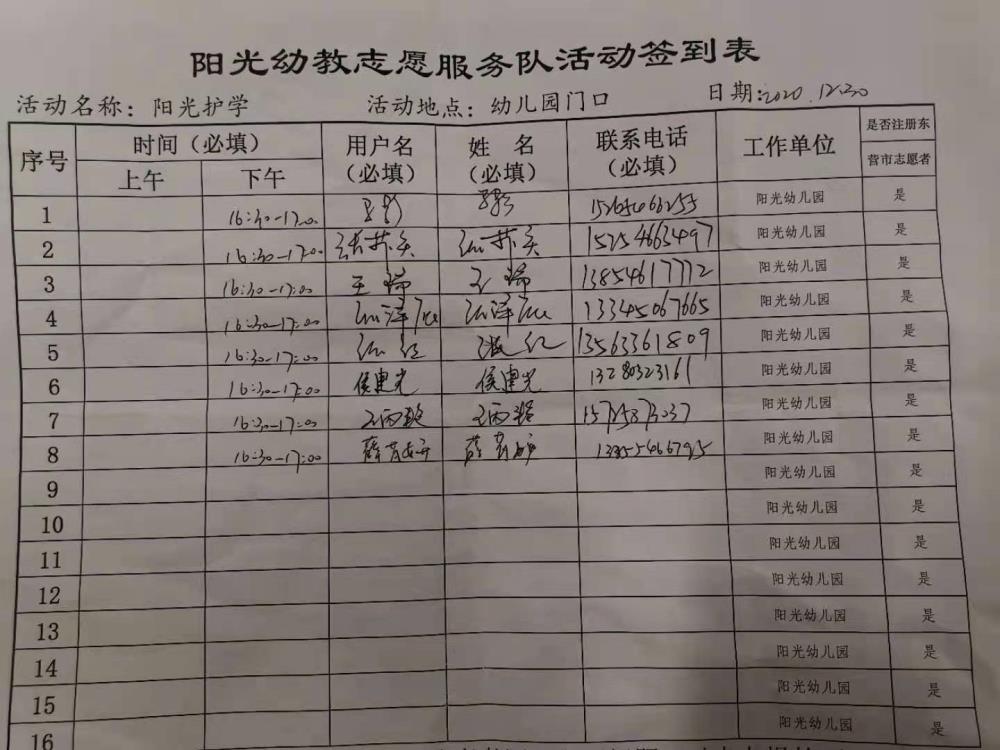 阳光幼教志愿服务队活动签到表
活动名称：阳光护学 活动地点：幼儿园门口 日期:2020.12.30
序号 时间（必填） 用户名（必填） 姓 名（必填） 联系电话（必填） 工作单位 是否注册东营市志愿者
上午 下午
1 16:30-17:00 阳光幼儿园 是
2 16:30-17:00 15254663497 阳光幼儿园 是
3 16:30-17:00 王瑞 王瑞 13854617772 阳光幼儿园 是
4 16:30-17:00 13345067665 阳光幼儿园 是
5 16:30-17:00 张红 张红 13563361809 阳光幼儿园 是
6 16:30-17:00 侯建光 侯建光 13280323161 阳光幼儿园 是
7 16:30-17:00 阳光幼儿园 是
8 16:30-17:00 阳光幼儿园 是
9 阳光幼儿园 是
10 阳光幼儿园 是
11 阳光幼儿园 是
12 阳光幼儿园 是
13 阳光幼儿园 是
14 阳光幼儿园 是
15 阳光幼儿园 是
16 阳光幼儿园 是